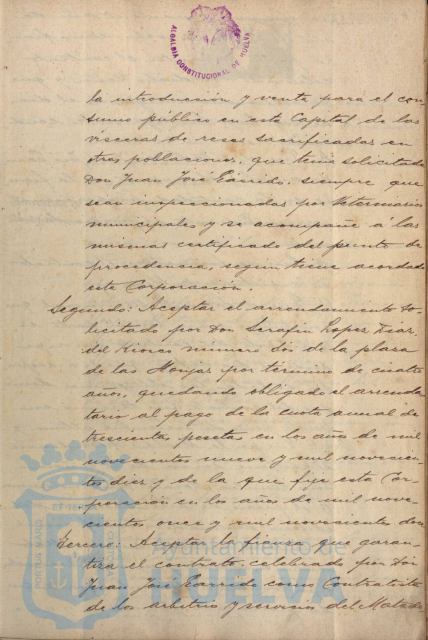 ALCALDIA CONSTITUCIONAL DE HUELVA
la introducción y venta para el con-
sumo público en esta Capital de las
vísceras de reses sacrificadas en
otras poblaciones, que tenia solicitada
Don Juan José Garrido, siempre que
sean inspeccionadas por Veterinarios
municipales y se acompañe á las
mismas certificado del punto de
procedencia, segun tiene acordado
esta Corporación.
Segundo: Aceptar el arrendamiento so-
licitado por Don Serafin Lopez Diaz,
del Kiosco número dos de la plaza
de las Monjas por término de cuatro
años, quedando obligado el arrenda-
tario al pago de la cuota anual de
trescientas pesetas en los años de mil
novecientos nueve y mil novecien-
tos diez y de la que fije esta Cor-
poración en los años de mil nove-
cientos once y mil novecientos doce
Tercero: Aceptar la fianza que garan-
tiza el contrato celebrado por Don
Juan José Garrido como Contratista
de los arbitrios y servicios del Matade
Ayuntamiento de
HUELVA
PORTUS MARIS